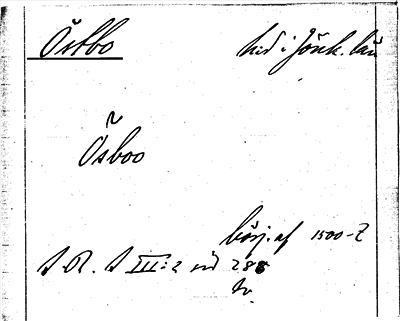 Östbo hd i Jönk. län
Ösboo
börj. af 1500-t
S R. S III: 2 sid 288